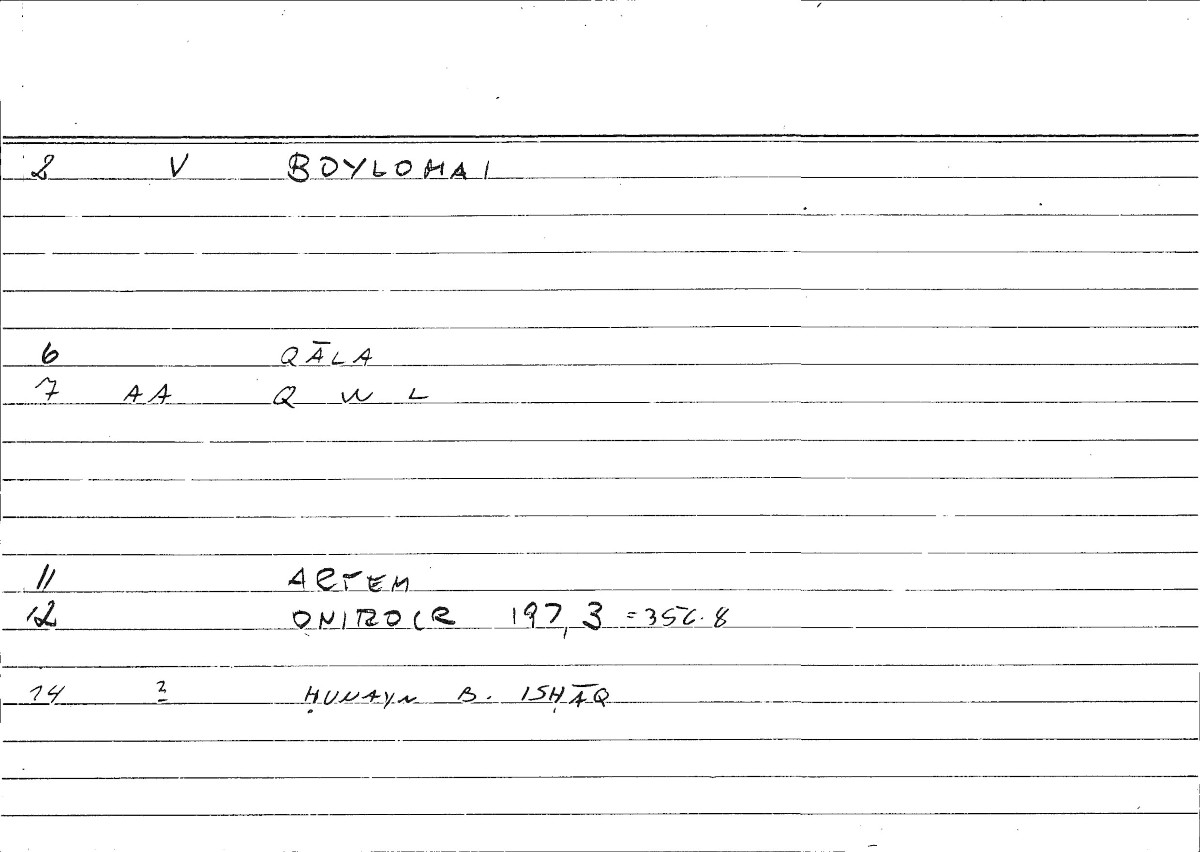 2 V BOYLOMAI
6 QĀLA
7 AA Q W L
11 ARTEM
12 ONIROCR 197,3 = 356.8
14 2 ḤUNAYN B. ISḤĀQ